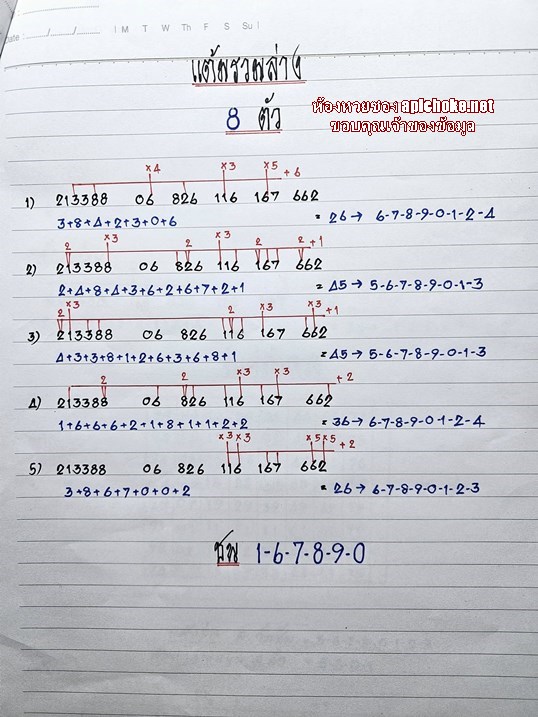 Date :....../....../......  | M  T  W  Th  F  S  Su |
แต้มรวมล่าง
8 ตัว
ห้องหวยซอง apichoke.net
ขอบคุณเจ้าของข้อมูล
×4 ×3 ×5 +6
1) 213388 06 826 116 167 662
3+8+4+2+3+0+6 = 26→ 6-7-8-9-0-1-2-4
2 ×3 2 ×3 2 2 +1
2) 213388 06 826 116 167 662
2+4+8+4+3+6+2+6+7+2+1 = 45→ 5-6-7-8-9-0-1-3
2 ×3 2 ×3 ×3 +1
3) 213388 06 826 116 167 662
4+3+3+8+1+2+6+3+6+8+1 = 45→ 5-6-7-8-9-0-1-3
2 2 ×3 ×3 +2
4) 213388 06 826 116 167 662
1+6+6+6+2+1+8+1+1+2+2 = 36→ 6-7-8-9-0-1-2-4
×3 ×3 ×5 ×5 +2
5) 213388 06 826 116 167 662
3+8+6+7+0+0+2 = 26→ 6-7-8-9-0-1-2-3
ชน 1-6-7-8-9-0